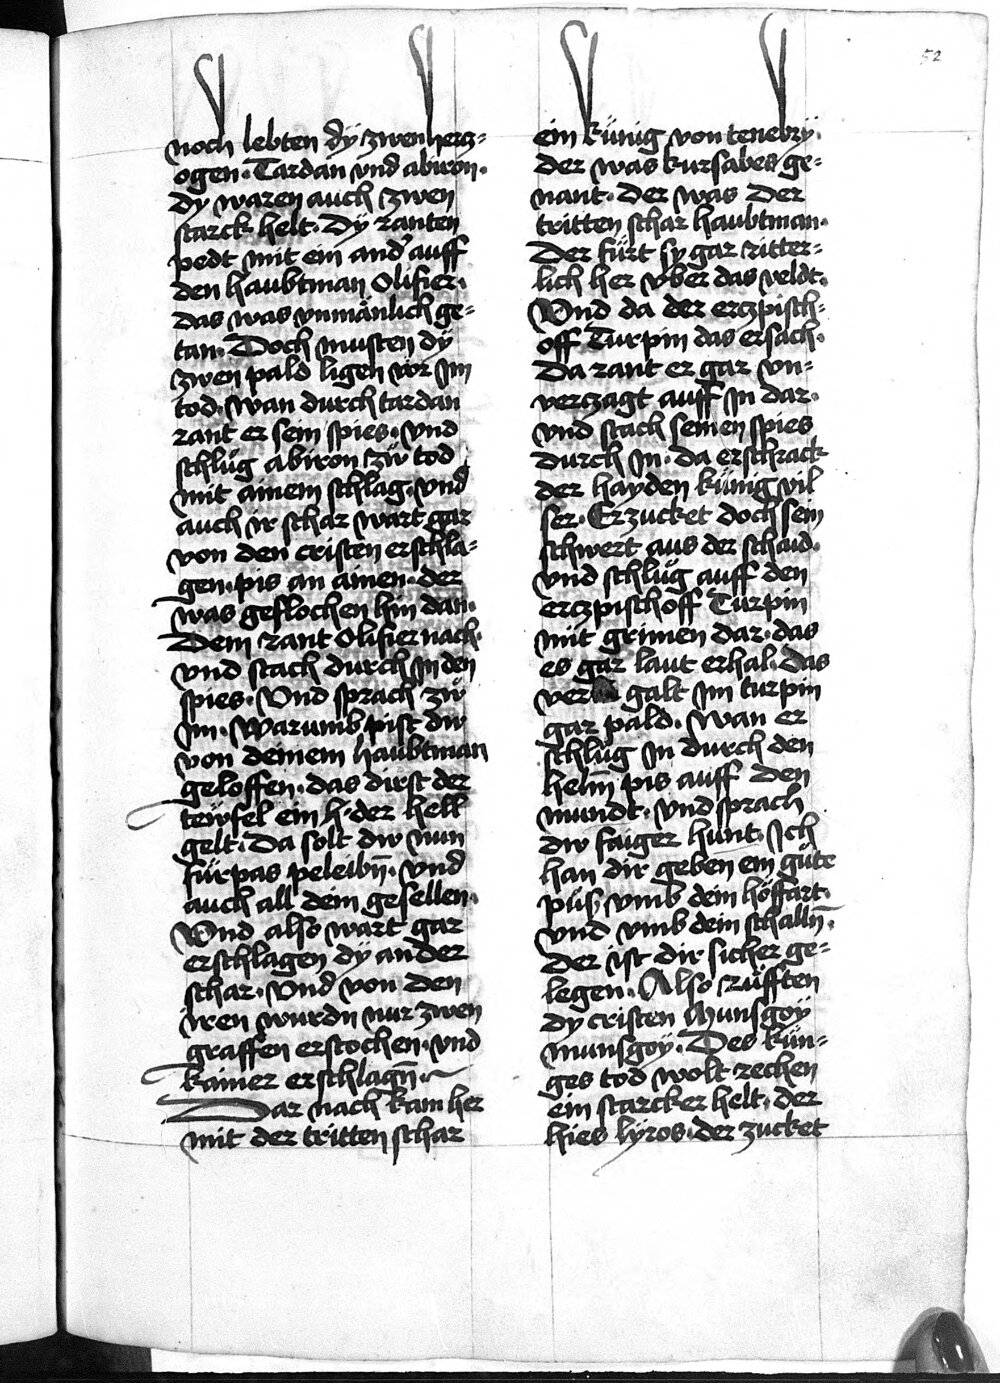 52
noch lebten dÿ zwen hercz=
ogen. Tardan vnd abiron.
dy waren auch zwen
starck helt. Dÿ ranten
pedt mit ein and' auff
den haubtman Olifier.
das was vnmänlich ge=
tan. Doch musten dÿ
zwen pald ligen vor Im
tod. wan durch tardan
rant er sein spies. vnd
schlůg abiron zw tod
mit ainem schlag. vnd
auch ir schar wart gar
von den cristen erschla=
gen. pis an ainen. der
was geflochen hin dan.
Dem rant Olifier nach.
vnd stach durch In den
spies. Vnd sprach zw
Im. Warumb pist dw
von deinem haubtman
geloffen. das dirst der
tewfel ein h. der hell
gelt. Da solt dw nun
fürpas peleibn̄. vnd
auch all dein gesellen.
Vnd also wart gar
erschlagen dÿ ander
schar. Vnd von den
iren wurdn nur zwen
graffen erstochen. vnd
kainer erschlagn̄.
Dar nach kam her
mit der tritten schar
ein künig von tenebrÿ.
der was kursabes ge=
nant. der was der
tritten schar haubtman.
Der fürt sy gar ritter=
lich her vber das veldt.
Vnd da der erczpisch=
off Turpin das ersach.
Da rant er gar vn=
verczagt auff In dar.
vnd stach seinen spies
durch In. da erschrack
der hayden künig vil
ser. Er zucket doch sein
schwert aus der schaid.
vnd schlůg auff den
erczpischoff Turpin
mit grimen dar. das
es gar laut erhal. Das
ver galt Im turpin
gar pald. Wan er
schlůg In durch den
helm̄ pis auff den
mundt. vnd sprach
dw faiger hunt. Ich
han dir geben ein gůte
půß vmb dein höffart.
vnd vmb dein schalln̄.
der ist dir sicher ge=
legen. Also růfften
dy cristen Munsgoÿ
munsgoÿ. Des kün=
ges tod wolt rechen
ein starcker helt. der
hies lÿros. der zucket